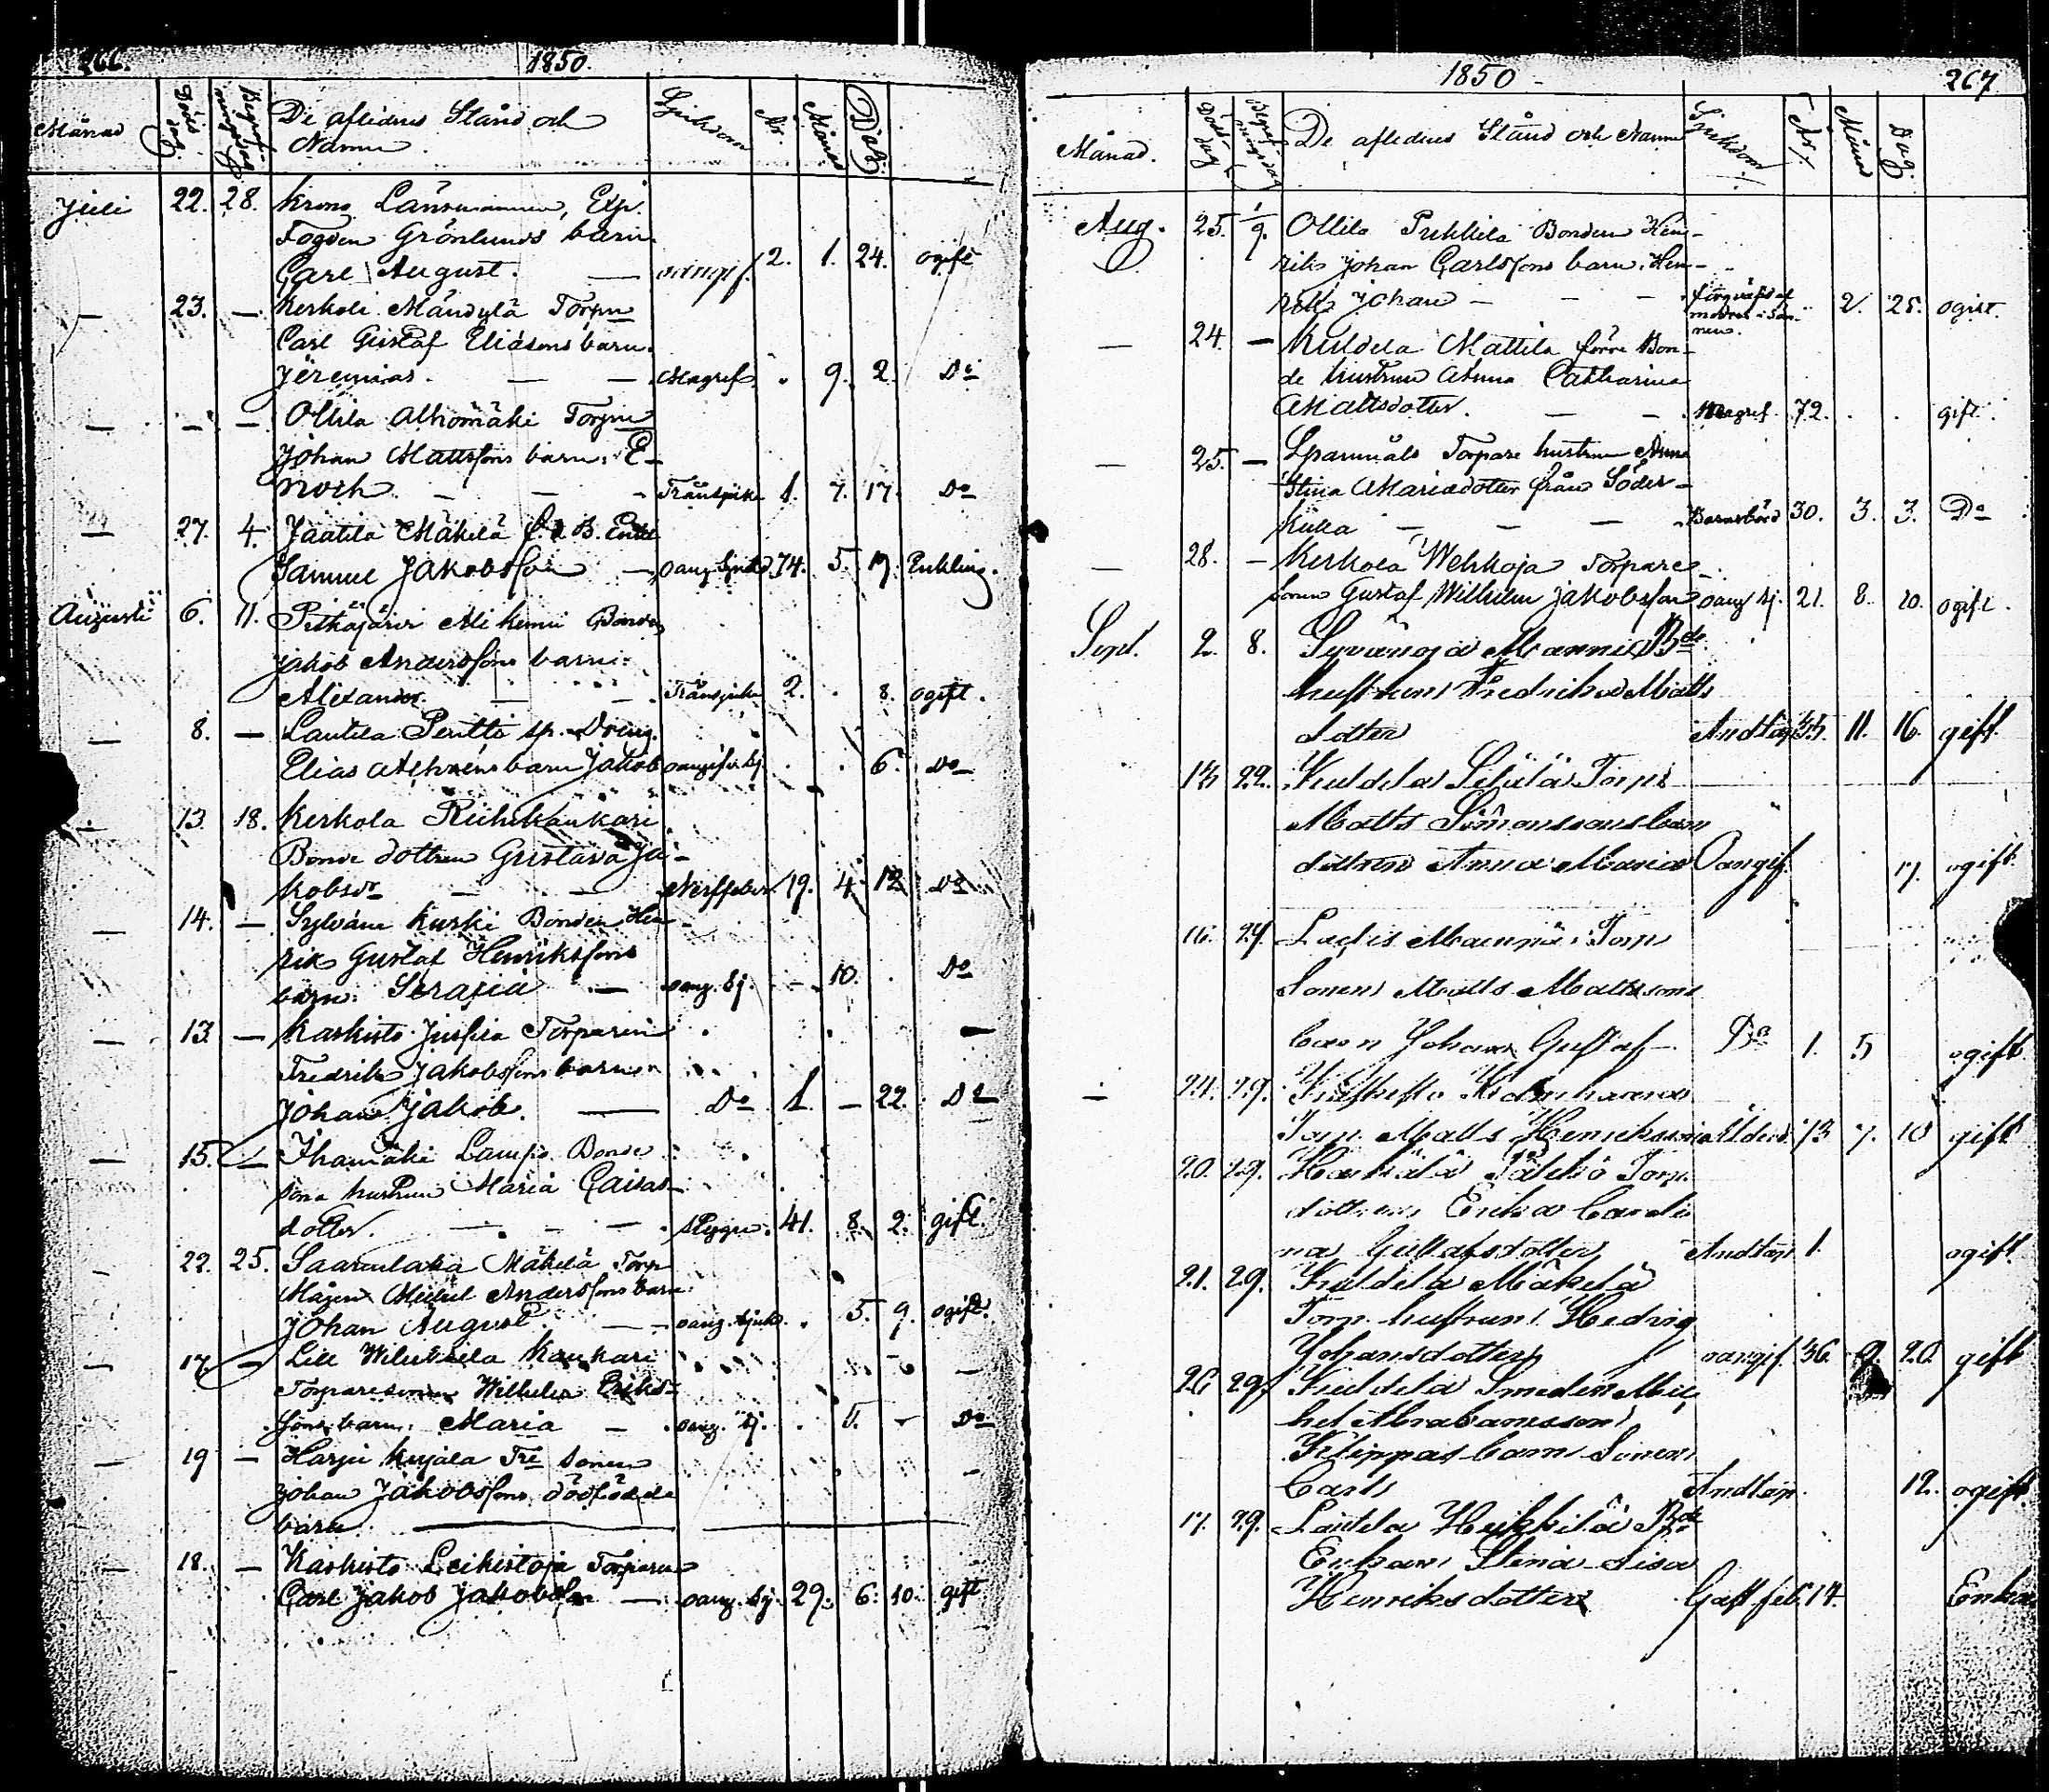 1850.
Månad Döds dag Begrafningsdag De aflidnes Stånd och Namn. Sjukdom År. Månad Dag.
Juli 22. 28. Krono Länsmannen, Exp.
Fogden Grönlunds barn.
Carl August. — 2. 1. 24. ogift
— 23. — Kerkola Mändylä Torpn
Carl Gustaf Eliäsons barn.
Jeremias. — — Magref. 9. 2. Do
— — — Ollila Alhomäki Torpn
Johan Mattssons barn: E-
noch. — — Tränsjuka 1. 7. 17. Do
— 27. 4. Jaatila Mäkelä f. d. B. Enkl.
Samuel Jakobsson — oang. Sjukd. 74. 5. 17. Enkling.
Augusti 6. 11. Pitkäjärvi Bonden
Jakob Anderssons barn:
Alexander. — — Tränsjuka 2. . 8. ogift.
— 8. — Lautela Penttö sp. Dreng.
Elias barn Jakob oangifv. sj. . . 6. Do
— 13. 18. Kerkola Riihikaukari
Bonde dottren Gustava Ja-
kobsdr — — Nerffeber 19. 4. 12. Do
— 14. — Sylväne Kurki Bonden Hen-
rik Gustaf Henrikssons
barn: Serafia — oang. sj. — 10. . Do
— 13. — Karkisto Torparen
Fredrik Jakobssons barn
Johan Jakob. — Do 1. — 22. Do
— 15. — Ihamäki Lampo Bonde
sona hustrun Maria Caisas-
dotter. — — — Stygn. 41. 8. 2. gift.
— 22. 25. Saarenlaka Mäkelä Torp
Mågen Mickel Anderssons barn
Johan August. — oang. sjukd. . 5. 9. ogift.
— 17. — Lill Kaukari
Torparesonen Wilhelm Eriks-
sons barn: Maria — oang. sj. . 5. — Do
— 19 — Harju Kujala Tre sonen
Johan Jakobssons dödfödde
barn.
— 18. — Karkisto Leikistoja Torparen
Carl Jakob Jakobsson — oang. sj. 29. 6. 10. gift
1850 - 267
Månad. Döds dag Begrafningsdag De aflidnes Stånd och Namn Sjukdom År. Månad Dag.
Aug. 25. 1/9. Ollila Pukkila Bonden Hen-
rik Johan Carlssons barn. Hen-
rik Johan — — — förqväfd af modren i sömnen. 2. 25. ogift.
— 24. — Kuldela Mattila förre Bon-
de hustrun Anna Catharina
Mattsdotter. — — Magref. 72. . . gift.
— 25. — Spannåls Torpare hustrun Anna
Stina Mariadotter från Söder-
kulla — — — Barnsbörd 30. 3. 3. Do
— 28. — Kerkola Wehkoja Torpare-
sonen Gustaf Wilhelm Jakobsson oang sj. 21. 8. 20. ogift.
Sept. 2. 8. Syvänoja Manni Bde
hustrun Fredrika Matts
dotter Andtäp 11. 16. gift.
13 22. Kuldela Seljälä Torp:
Matts Simonssons barn
dottren Anna Maria Oangif. 17. ogift
16. 29. Torp
Sonen Matts Mattssons
barn Johan Gustaf — Do 1. 5 ogift
— 24. 29.
Torp. Matts Henriksson Ålderd. 73 7. 10 gift
20. 29. Torp.
dottren Erika Caroli
na Gustafsdotter Andtäp 1. ogift
21. 29. Kuldela Mäkelä
Torp. hustrun Hedvig
Johansdotter oangif. 36. 9. 20. gift
26 29. Kuldela Smeden Mic
hel Abrahamsson
Filippas barn Sonen
Carl Andtäp. 12. ogift.
17. 29. Lautela Heikkilä Bde
Enkan Stina Lisa
Henriksdotter Gast. feb. Enka